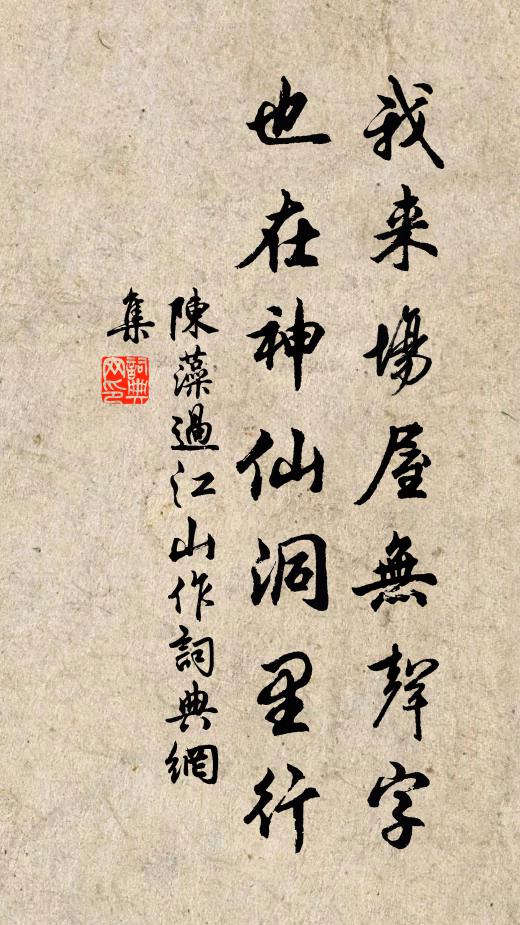 我来場屋無聲字
也在神仙洞里行
陳藻過江山作詞典網
集
詞典
网印